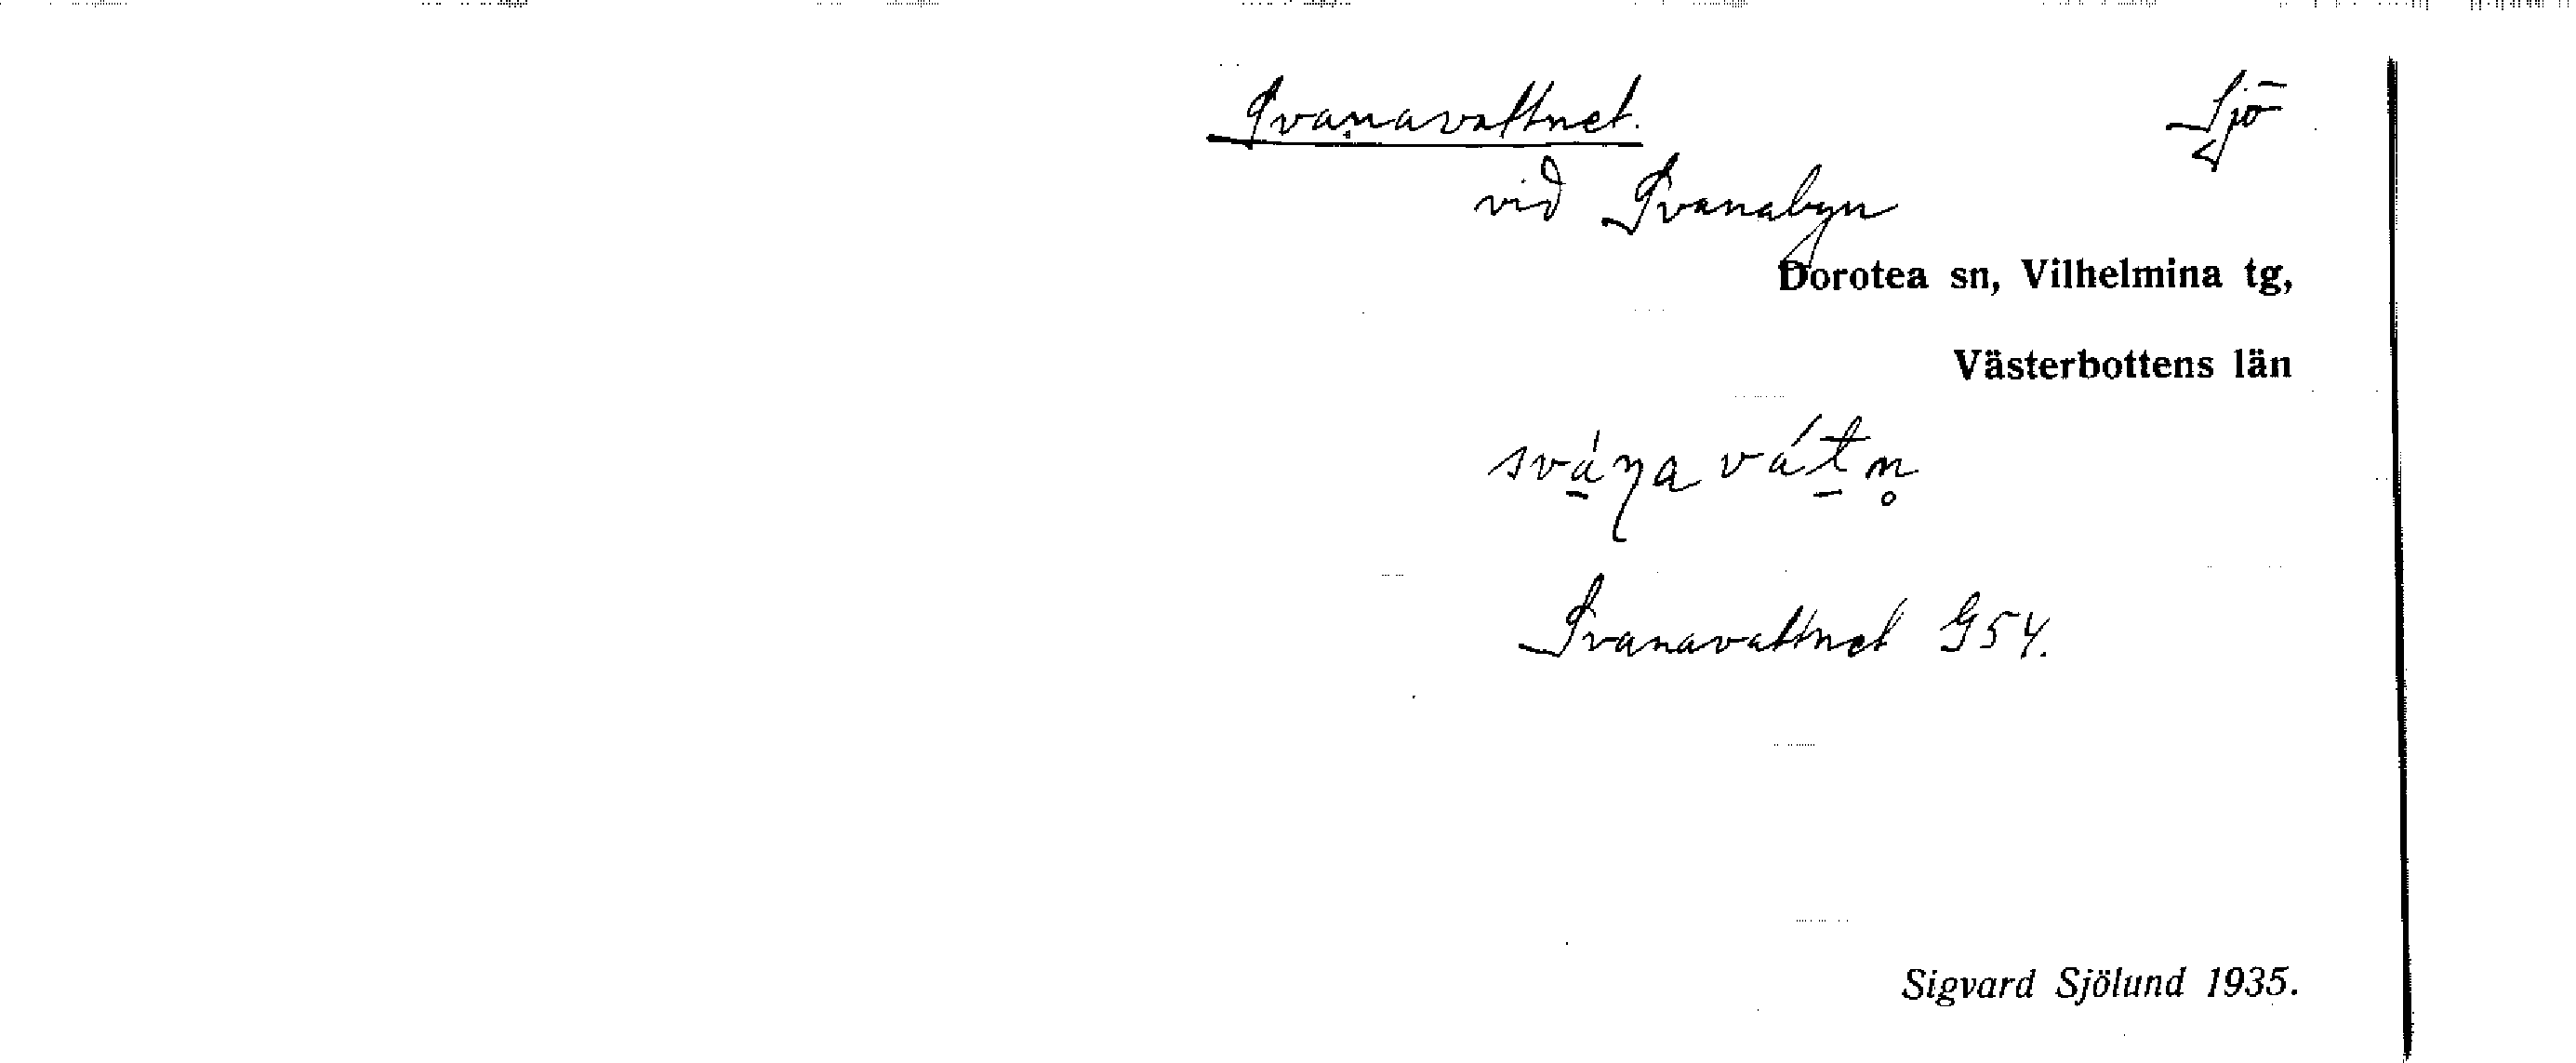 Svanavattnet. Sjö
vid Svanabyn
Dorotea sn, Vilhelmina tg,
Västerbottens län
svá̱ŋaváṯn̥
Svanavattnet G54.
Sigvard Sjölund 1935.